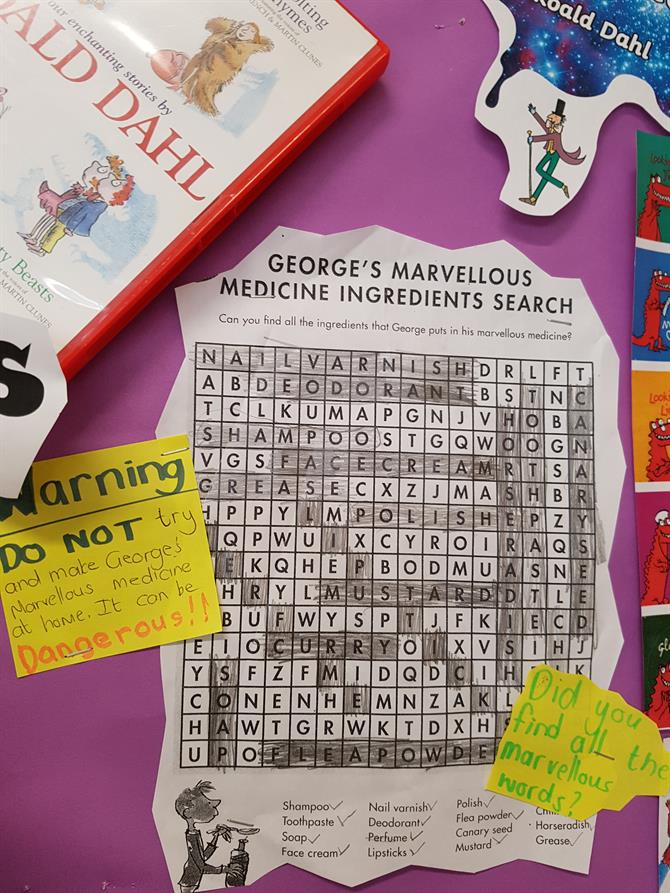 olting
hymes
ENCH & MARTIN CLUNES
our enchanting stories by
ALD DAHL
ty Beasts
MARTIN CLUNES
Roald Dahl
S
GEORGE'S MARVELLOUS
MEDICINE INGREDIENTS SEARCH
Can you find all the ingredients that George puts in his marvellous medicine?
N A I L V A R N I S H D R L F T
A B D E O D O R A N T B S T N C
T C L K U M A P G N J V H O B A
S H A M P O O S T G Q W O O G N
V G S F A C E C R E A M R T S A
G R E A S E C X Z J M A S H B R
P P Y L M P O L I S H E P Z Y
Q P W U I X C Y R O I R A Q S
E K Q H E P B O D M U A S N E
H R Y L M U S T A R D D T L E
B U F W Y S P T J F K I E C D
E I O C U R R Y O I X V S I H J
Y S F Z F M I D Q D C I H K
C O N E N H E M N Z A K L
H A W T G R W K T D X H S
U P O F L E A P O W D E
Warning
DO NOT try
and make George's
Marvellous medicine
at home. It can be
Dangerous!!
Did you
find all the
marvellous
words?
Shampoo Nail varnish Polish Chil
Toothpaste Deodorant Flea powder Horseradish
Soap Perfume Canary seed Grease
Face cream Lipsticks Mustard